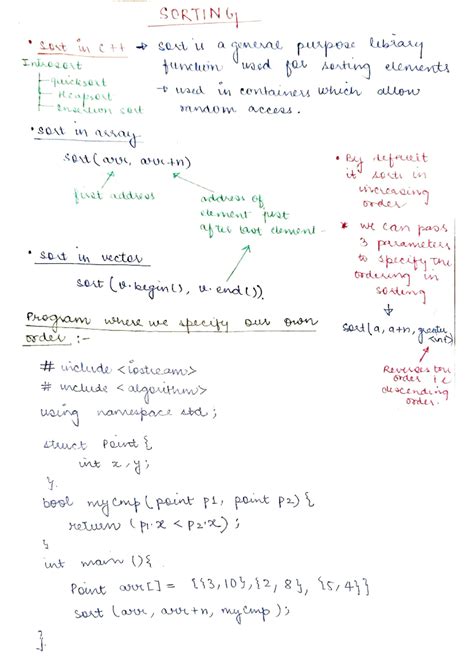 SORTING
• sort in c++ → sort is a general purpose library
function used for sorting elements
→ used in containers which allow
random access.
Introsort
quicksort
Heapsort
Insertion sort
• sort in array
sort(arr, arr+n)
first address
address of
element past
after last element
• sort in vector
sort (v.begin(), v.end())
• By default
it sorts in
increasing
order
* we can pass
3 parameters
to specify the
ordering in
sorting
sort(a, a+n, greater
<int>)
Reverses the
order i.e
descending
order.
Program where we specify our own
order :-
# include <iostream>
# include <algorithm>
using namespace std;
struct Point {
int x, y;
};
bool mycmp (point p1, point p2) {
return (p1.x < p2.x);
}
int main () {
Point arr[] = {{3,10},{2, 8}, {5,4}}
sort (arr, arr+n, mycmp);
}